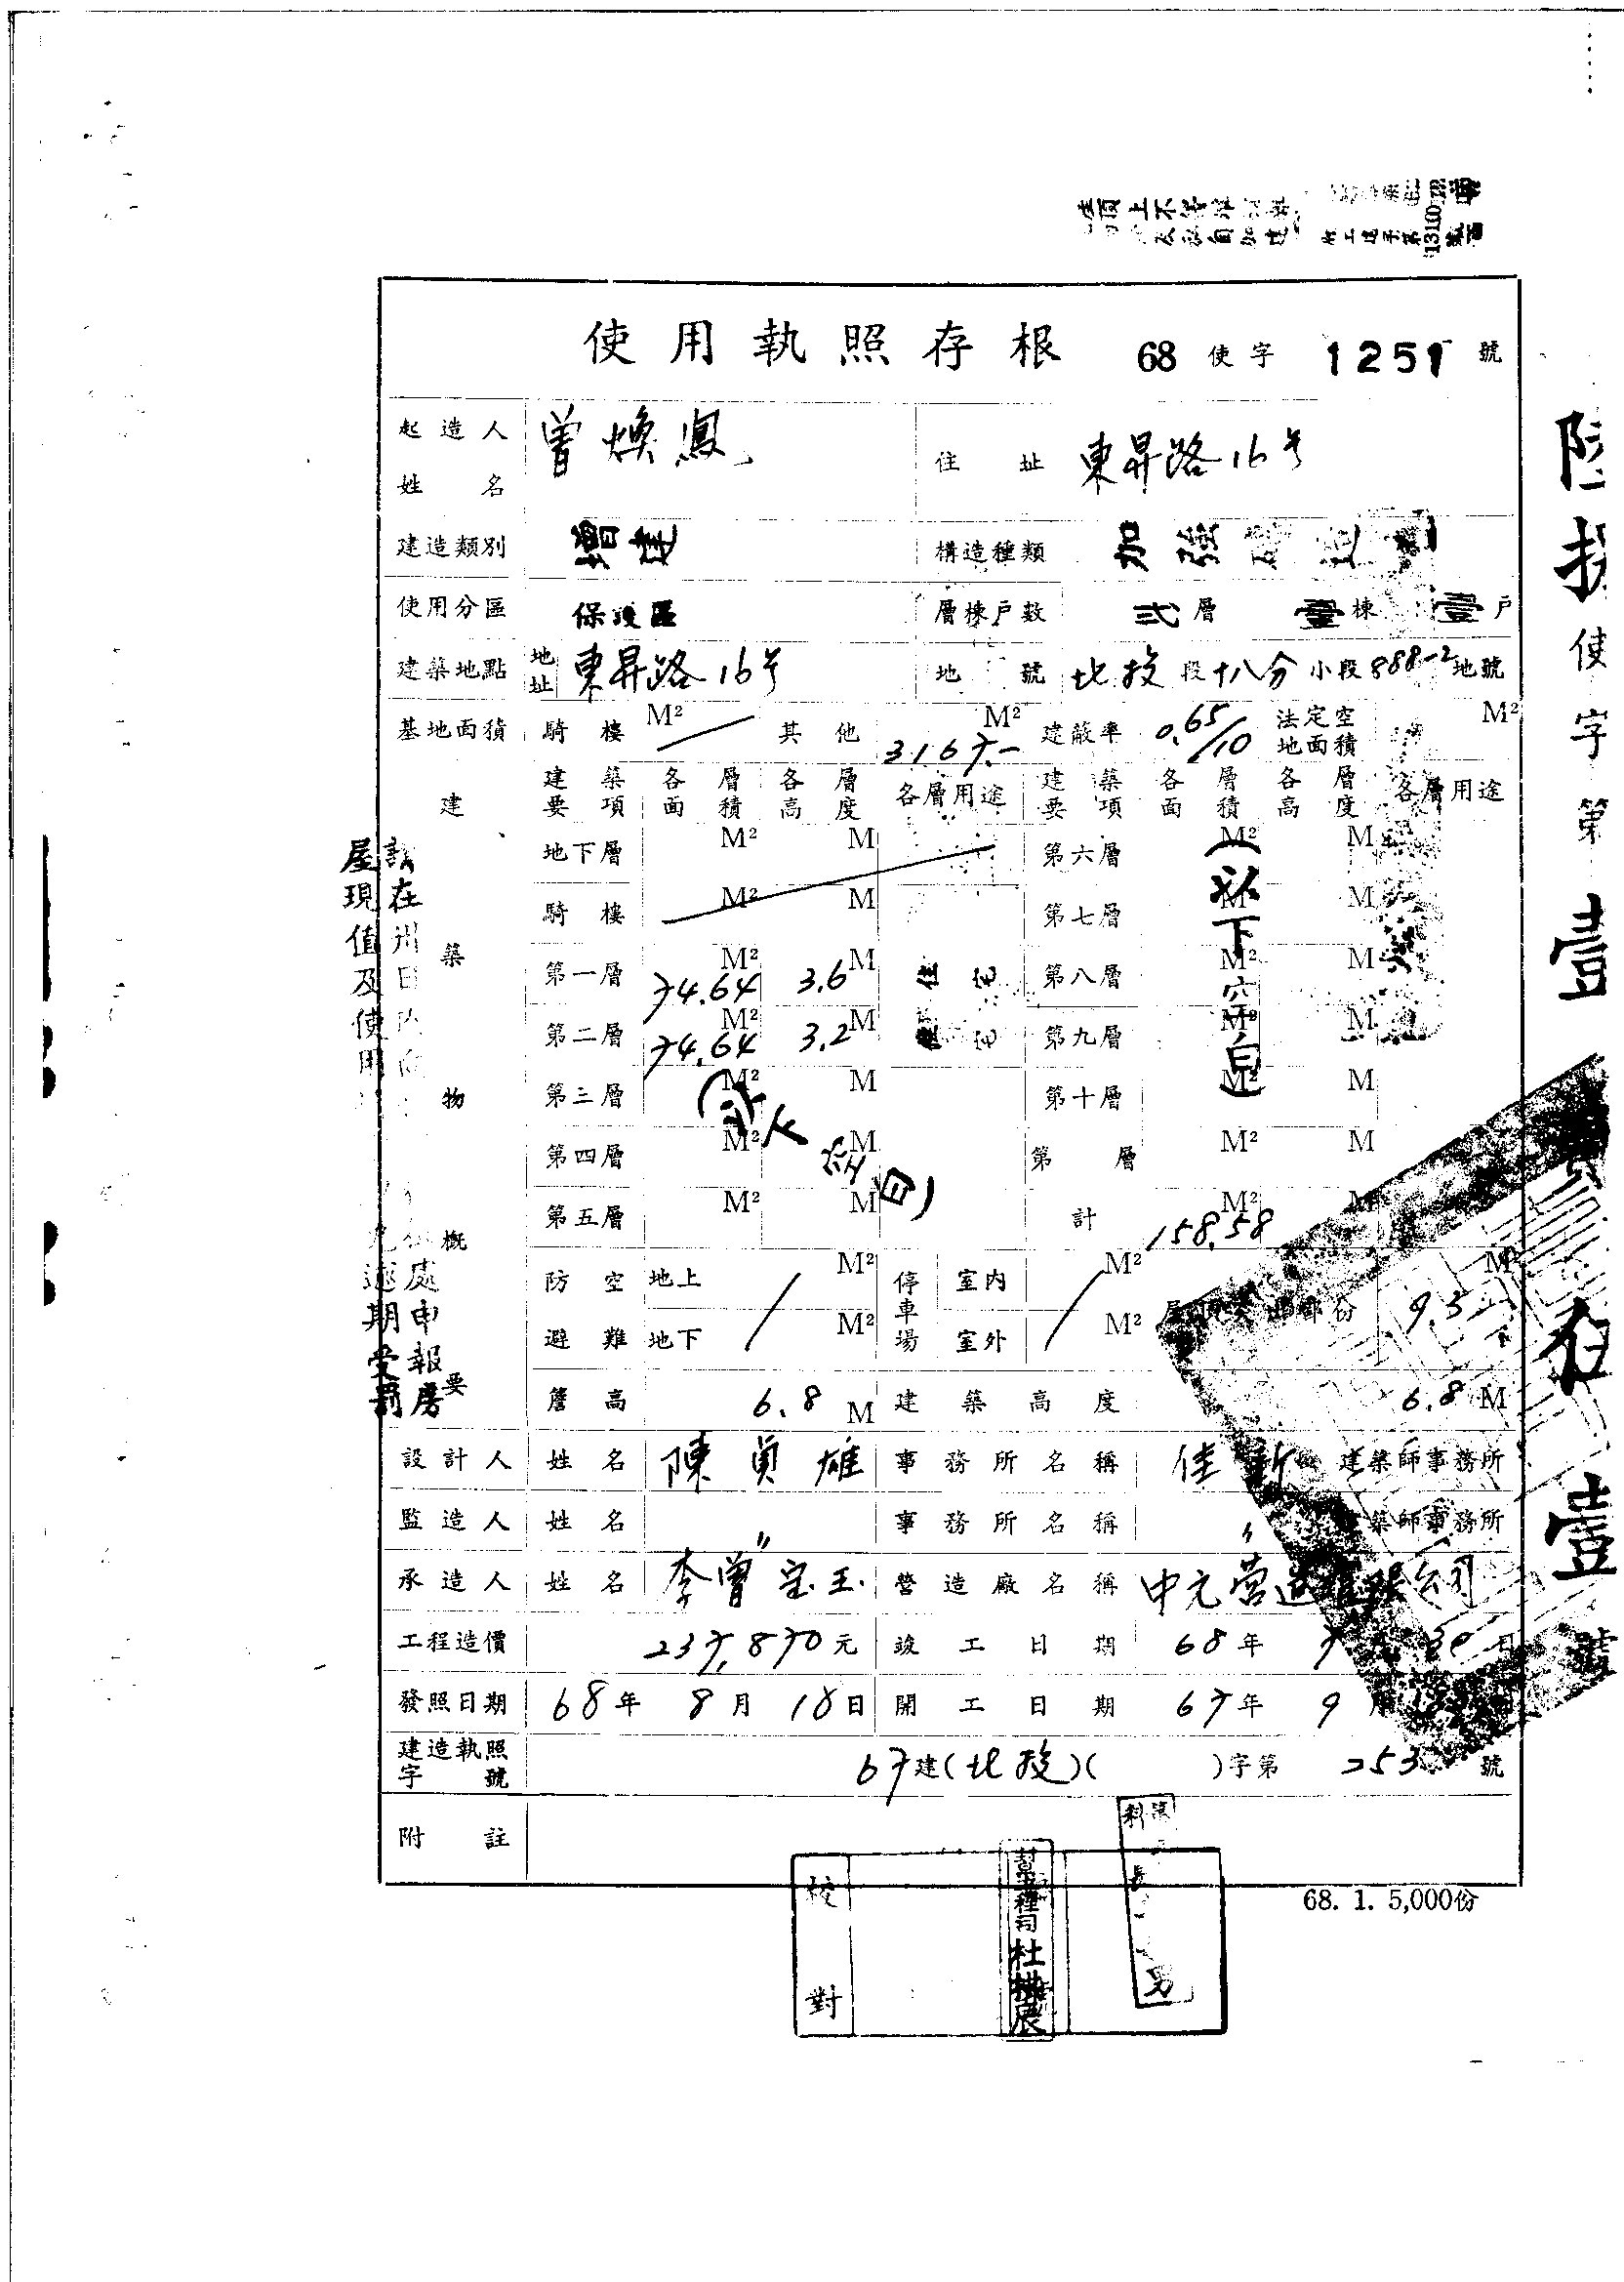 使用執照存根 68 使字 1251 號
起造人姓名 曾煥鳳 住址 東昇路16号
建造類別 增建 構造種類 加強
使用分區 保護區 層棟戶數 弍層 壹棟 壹戶
建築地點 地址 東昇路16号 地號 北投段十八分小段888-2地號
基地面積 騎樓 M² 其他 3167.- M² 建蔽率 0.65/10 法定空地面積 M²
建築物概要
建築要項 各層面積 各層高度 各層用途 建築要項 各層面積 各層高度 各層用途
地下層 M² M 第六層 M² M
騎樓 M² M 第七層 M² M
第一層 74.64 M² 3.6 M 住宅 第八層 M² M
第二層 74.64 M² 3.2 M 第九層 M² M
第三層 M² M 第十層 M² M
第四層 M² M 第 層 M² M
第五層 M² M 計 158.58 M² M
(以下空白)
(以下空白)
防空避難 地上 M² 停車場 室內 M²
地下 M² 室外 M²
簷高 6.8 M 建築高度 6.8 M
設計人 姓名 陳貞雄 事務所名稱 佳新 建築師事務所
監造人 姓名 〃 事務所名稱 〃 築師事務所
承造人 姓名 李曾宝玉 營造廠名稱 中元营造有限公司
工程造價 237,870元 竣工日期 68年 7月 30日
發照日期 68年 8月 18日 開工日期 67年 9月
建造執照字號 67建(北投)( )字第 253 號
附註
68. 1. 5,000份
校對
杜
男
陸拾 使字第壹 貳 伍壹號
屋現值及使用
逾期受罰
處申報房